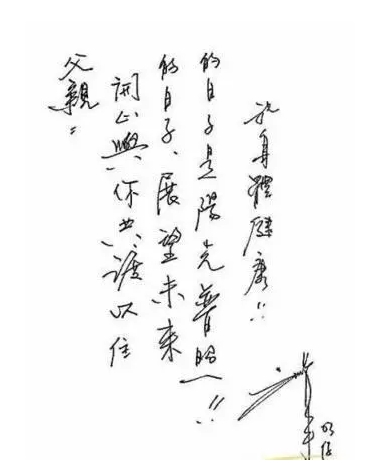 父親::
開心與你共渡以往
的日子、展望未來
的日子是陽光普照!!
祝身體健康!!